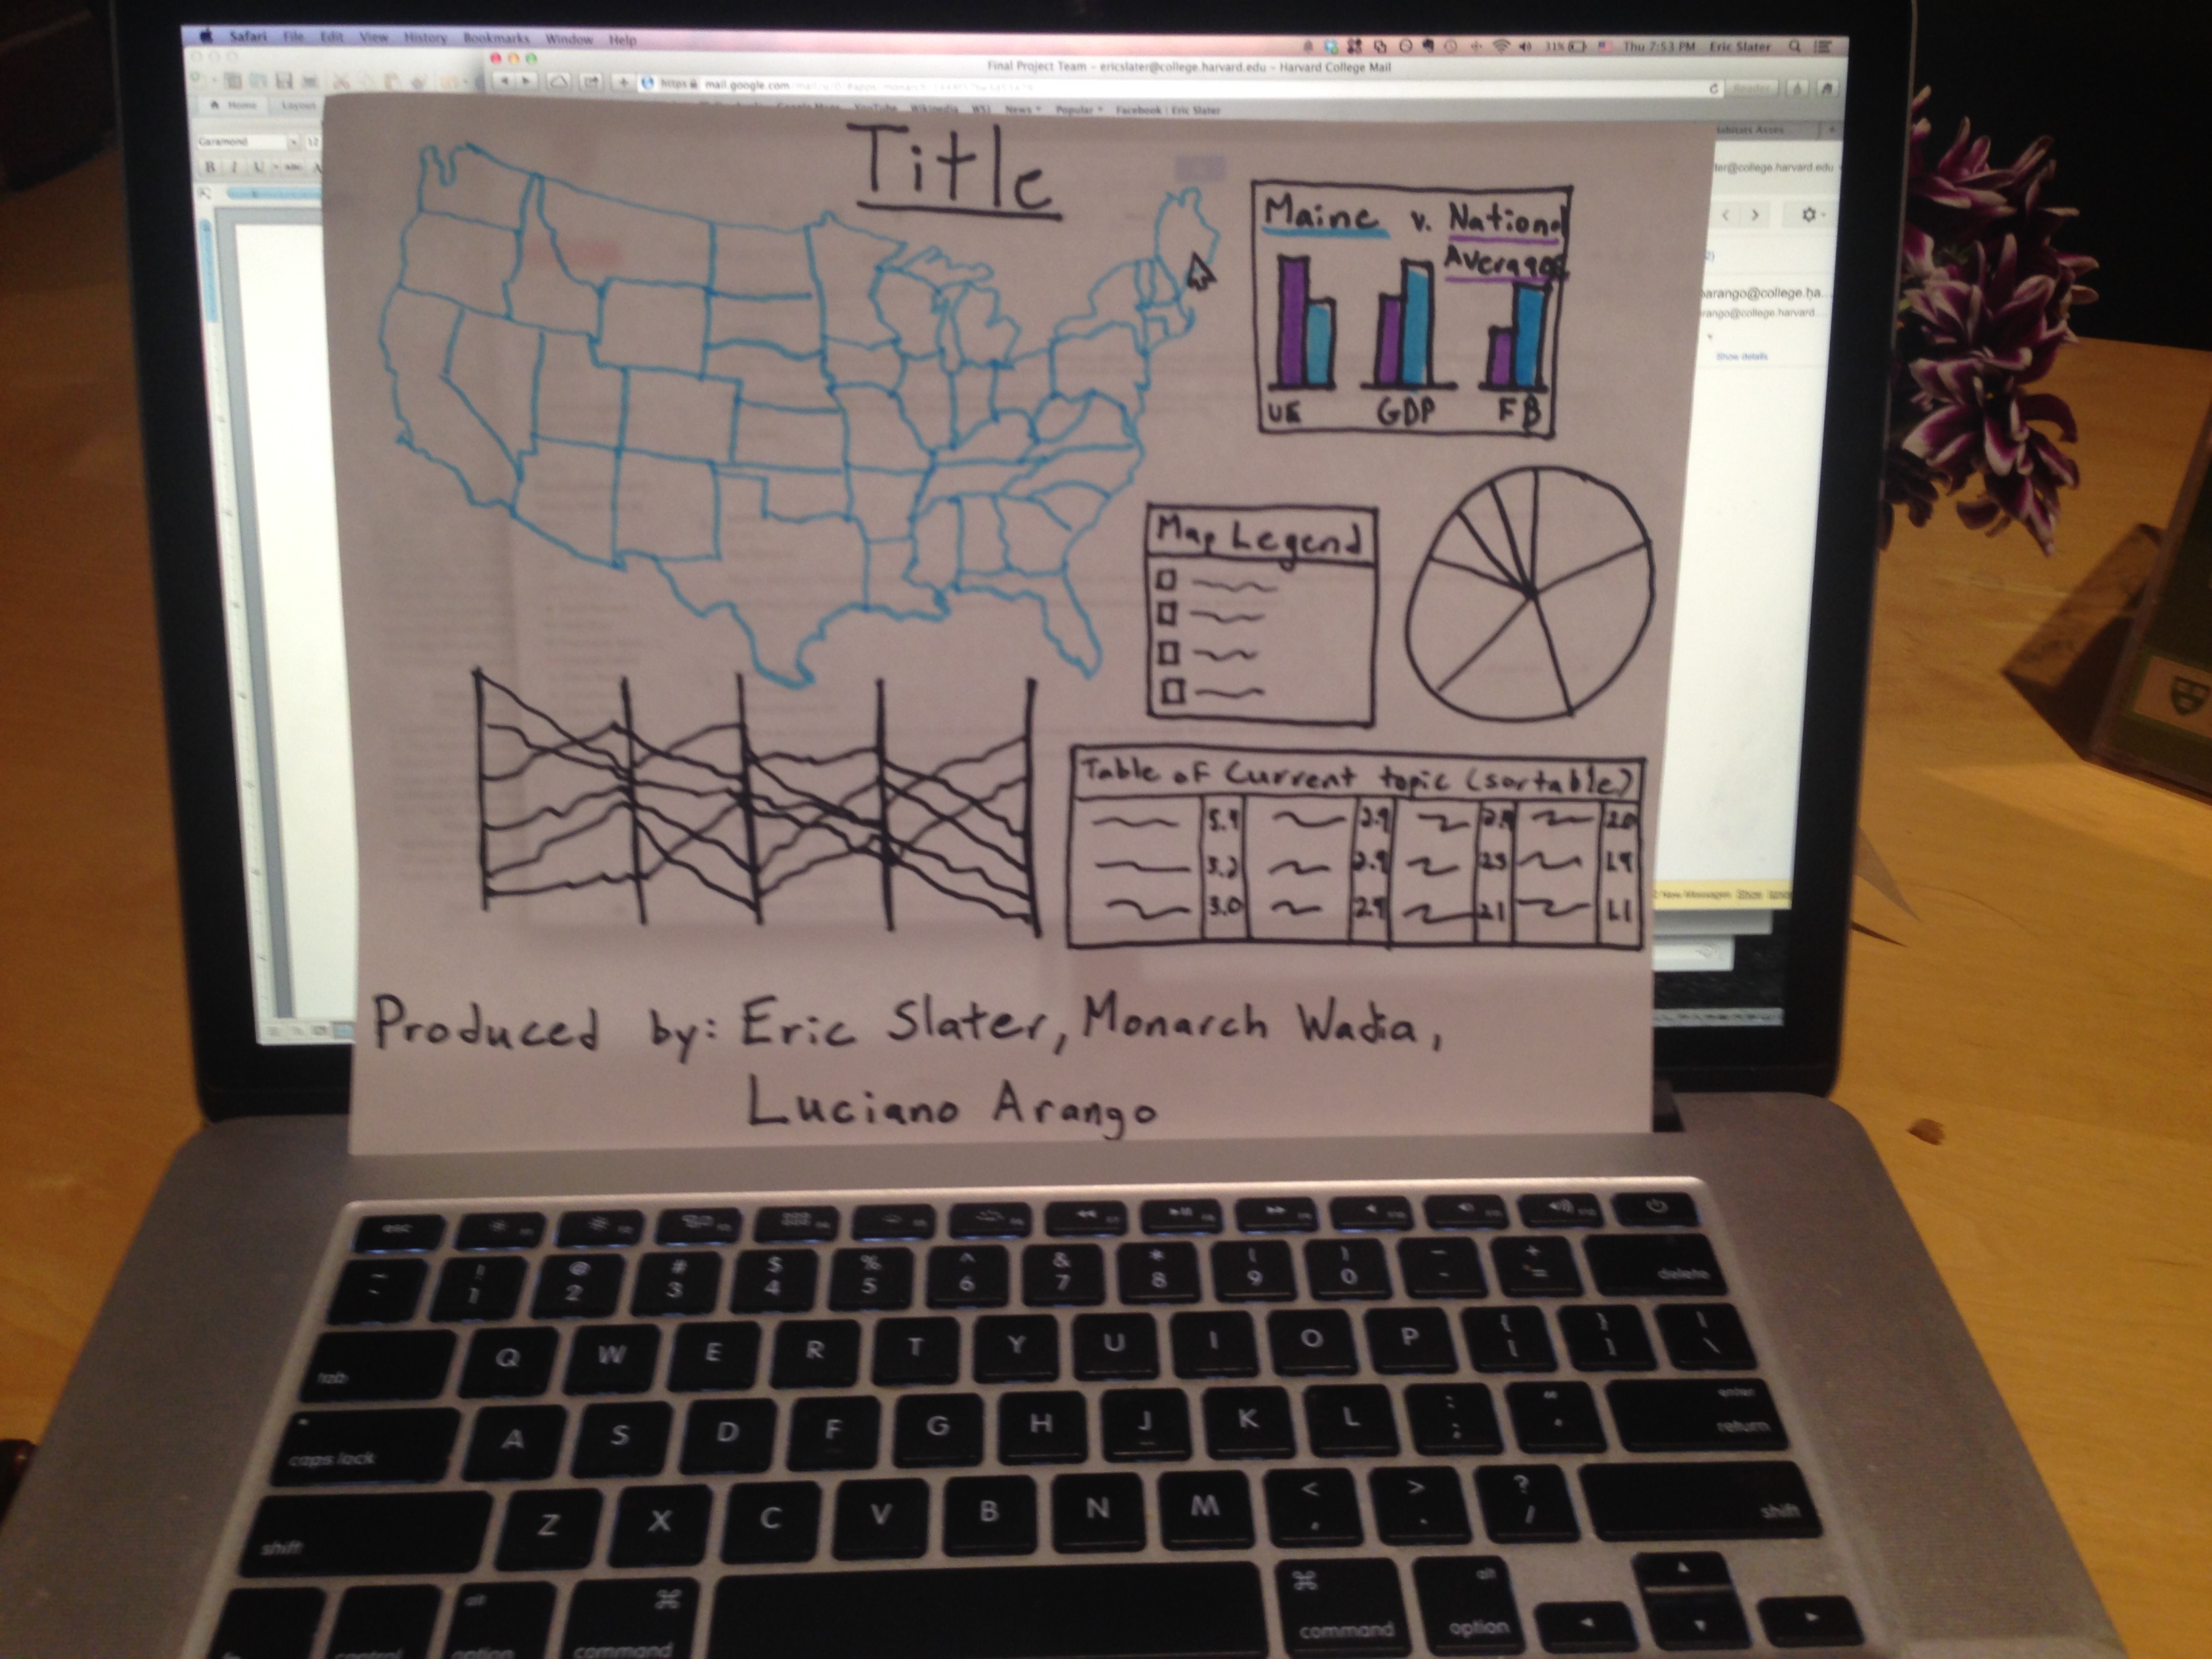 Safari File Edit View History Bookmarks Window Help
31% Thu 7:53 PM Eric Slater
Final Project Team – ericslater@college.harvard.edu – Harvard College Mail
https mail.google.com
Reader
YouTube Wikipedia WSJ News Popular Facebook Eric Slater
Home Layout
Garamond 12
B I U ABC A
Show details
Title
Maine v. National
Average
UE GDP FB
Map Legend
Table of Current topic (sortable)
5.9 2.9 2.0
3.2 2.9 23 1.9
3.0 2.9 21 1.1
Produced by: Eric Slater, Monarch Wadia,
Luciano Arango
esc
! @ # $ % ^ & * ( ) – +
1 2 3 4 5 6 7 8 9 0 - = delete
tab Q W E R T Y U I O P { [ } ] | \
caps lock A S D F G H J K L : ; " ' enter return
shift Z X C V B N M < , > . ? / shift
fn control alt option ⌘ command ⌘ command alt option